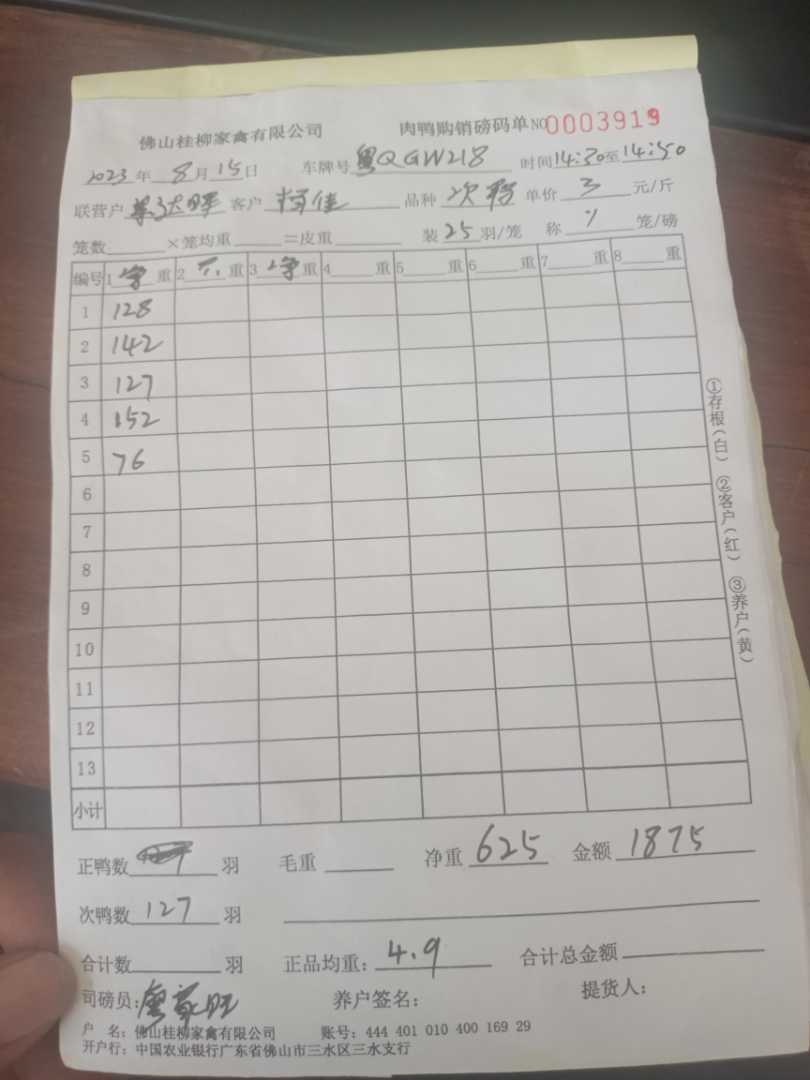 佛山桂柳家禽有限公司 肉鸭购销磅码单 NO 0003919
2023年 8月15日 车牌号 粤QGW218 时间14:30至14:50
联营户 客户 品种 次鸭 单价 3 元/斤
笼数 ×笼均重 =皮重 装25羽/笼 称 笼/磅
编号 1 净 重 2 重 3 净 重 4 重 5 重 6 重 7 重 8 重
1 128
2 142
3 127
4 152
5 76
6
7
8
9
10
11
12
13
小计
正鸭数 羽 毛重 净重 625 金额 1875
次鸭数 127 羽
合计数 羽 正品均重: 4.9 合计总金额
司磅员: 养户签名: 提货人:
户 名: 佛山桂柳家禽有限公司 账号: 444 401 010 400 169 29
开户行: 中国农业银行广东省佛山市三水区三水支行
①存根(白) ②客户(红) ③养户(黄)